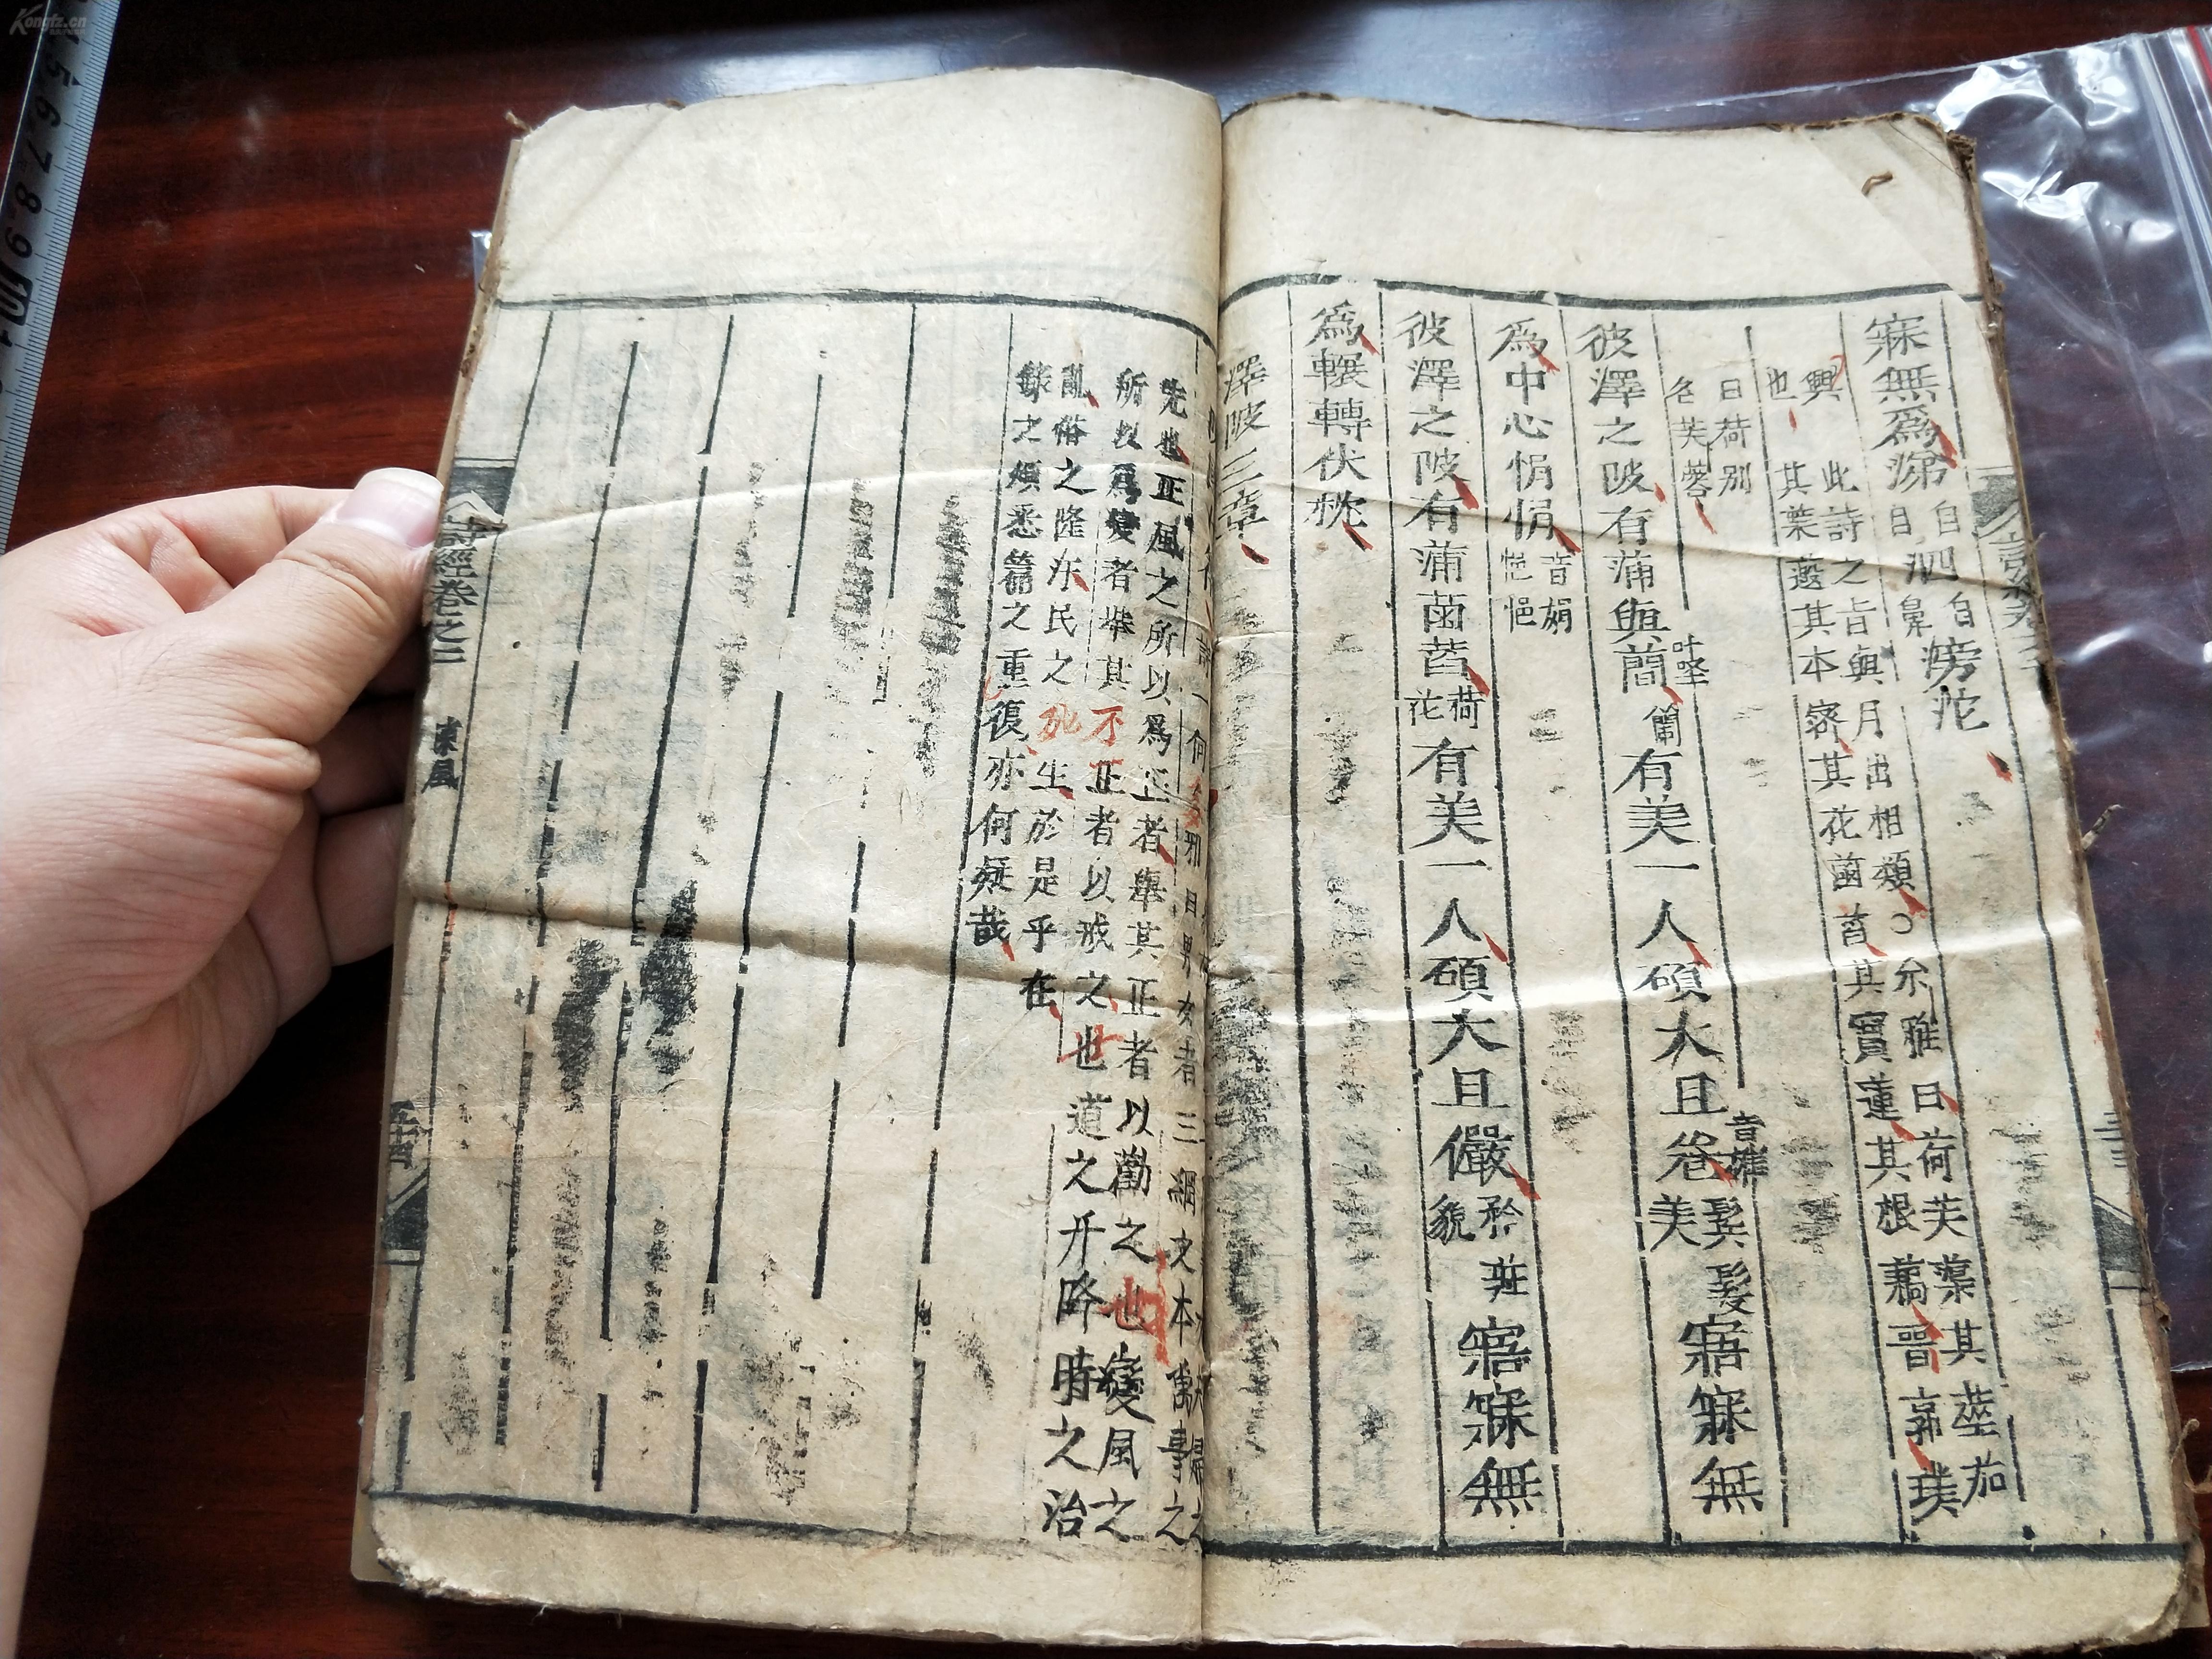 寐無爲涕自目泗自鼻滂沱
興也
此詩之旨與月出相類○尔雅曰荷芙蕖其莖茄
其葉蕸其本蔤其花菡萏其實蓮其根藕晉郭璞
曰荷別
名芙蓉
彼澤之陂有蒲與蕑叶堅蘭有美一人碩大且卷音權鬢髮美寤寐無
爲中心悁悁音娟悒悒
彼澤之陂有蒲菡萏荷花有美一人碩大且儼矜莊貌寤寐無
爲輾轉伏枕
澤陂三章
男女者三綱之本萬事之
先也正風之所以爲正者舉其正者以勸之也變風之
所以爲變者舉其不正者以戒之也道之升降時之治
亂俗之隆汚民之死生於是乎在
錄之煩悉篇之重復亦何疑哉
詩經卷之二
陳風
Kongfz.cn
5 6 7 8 9